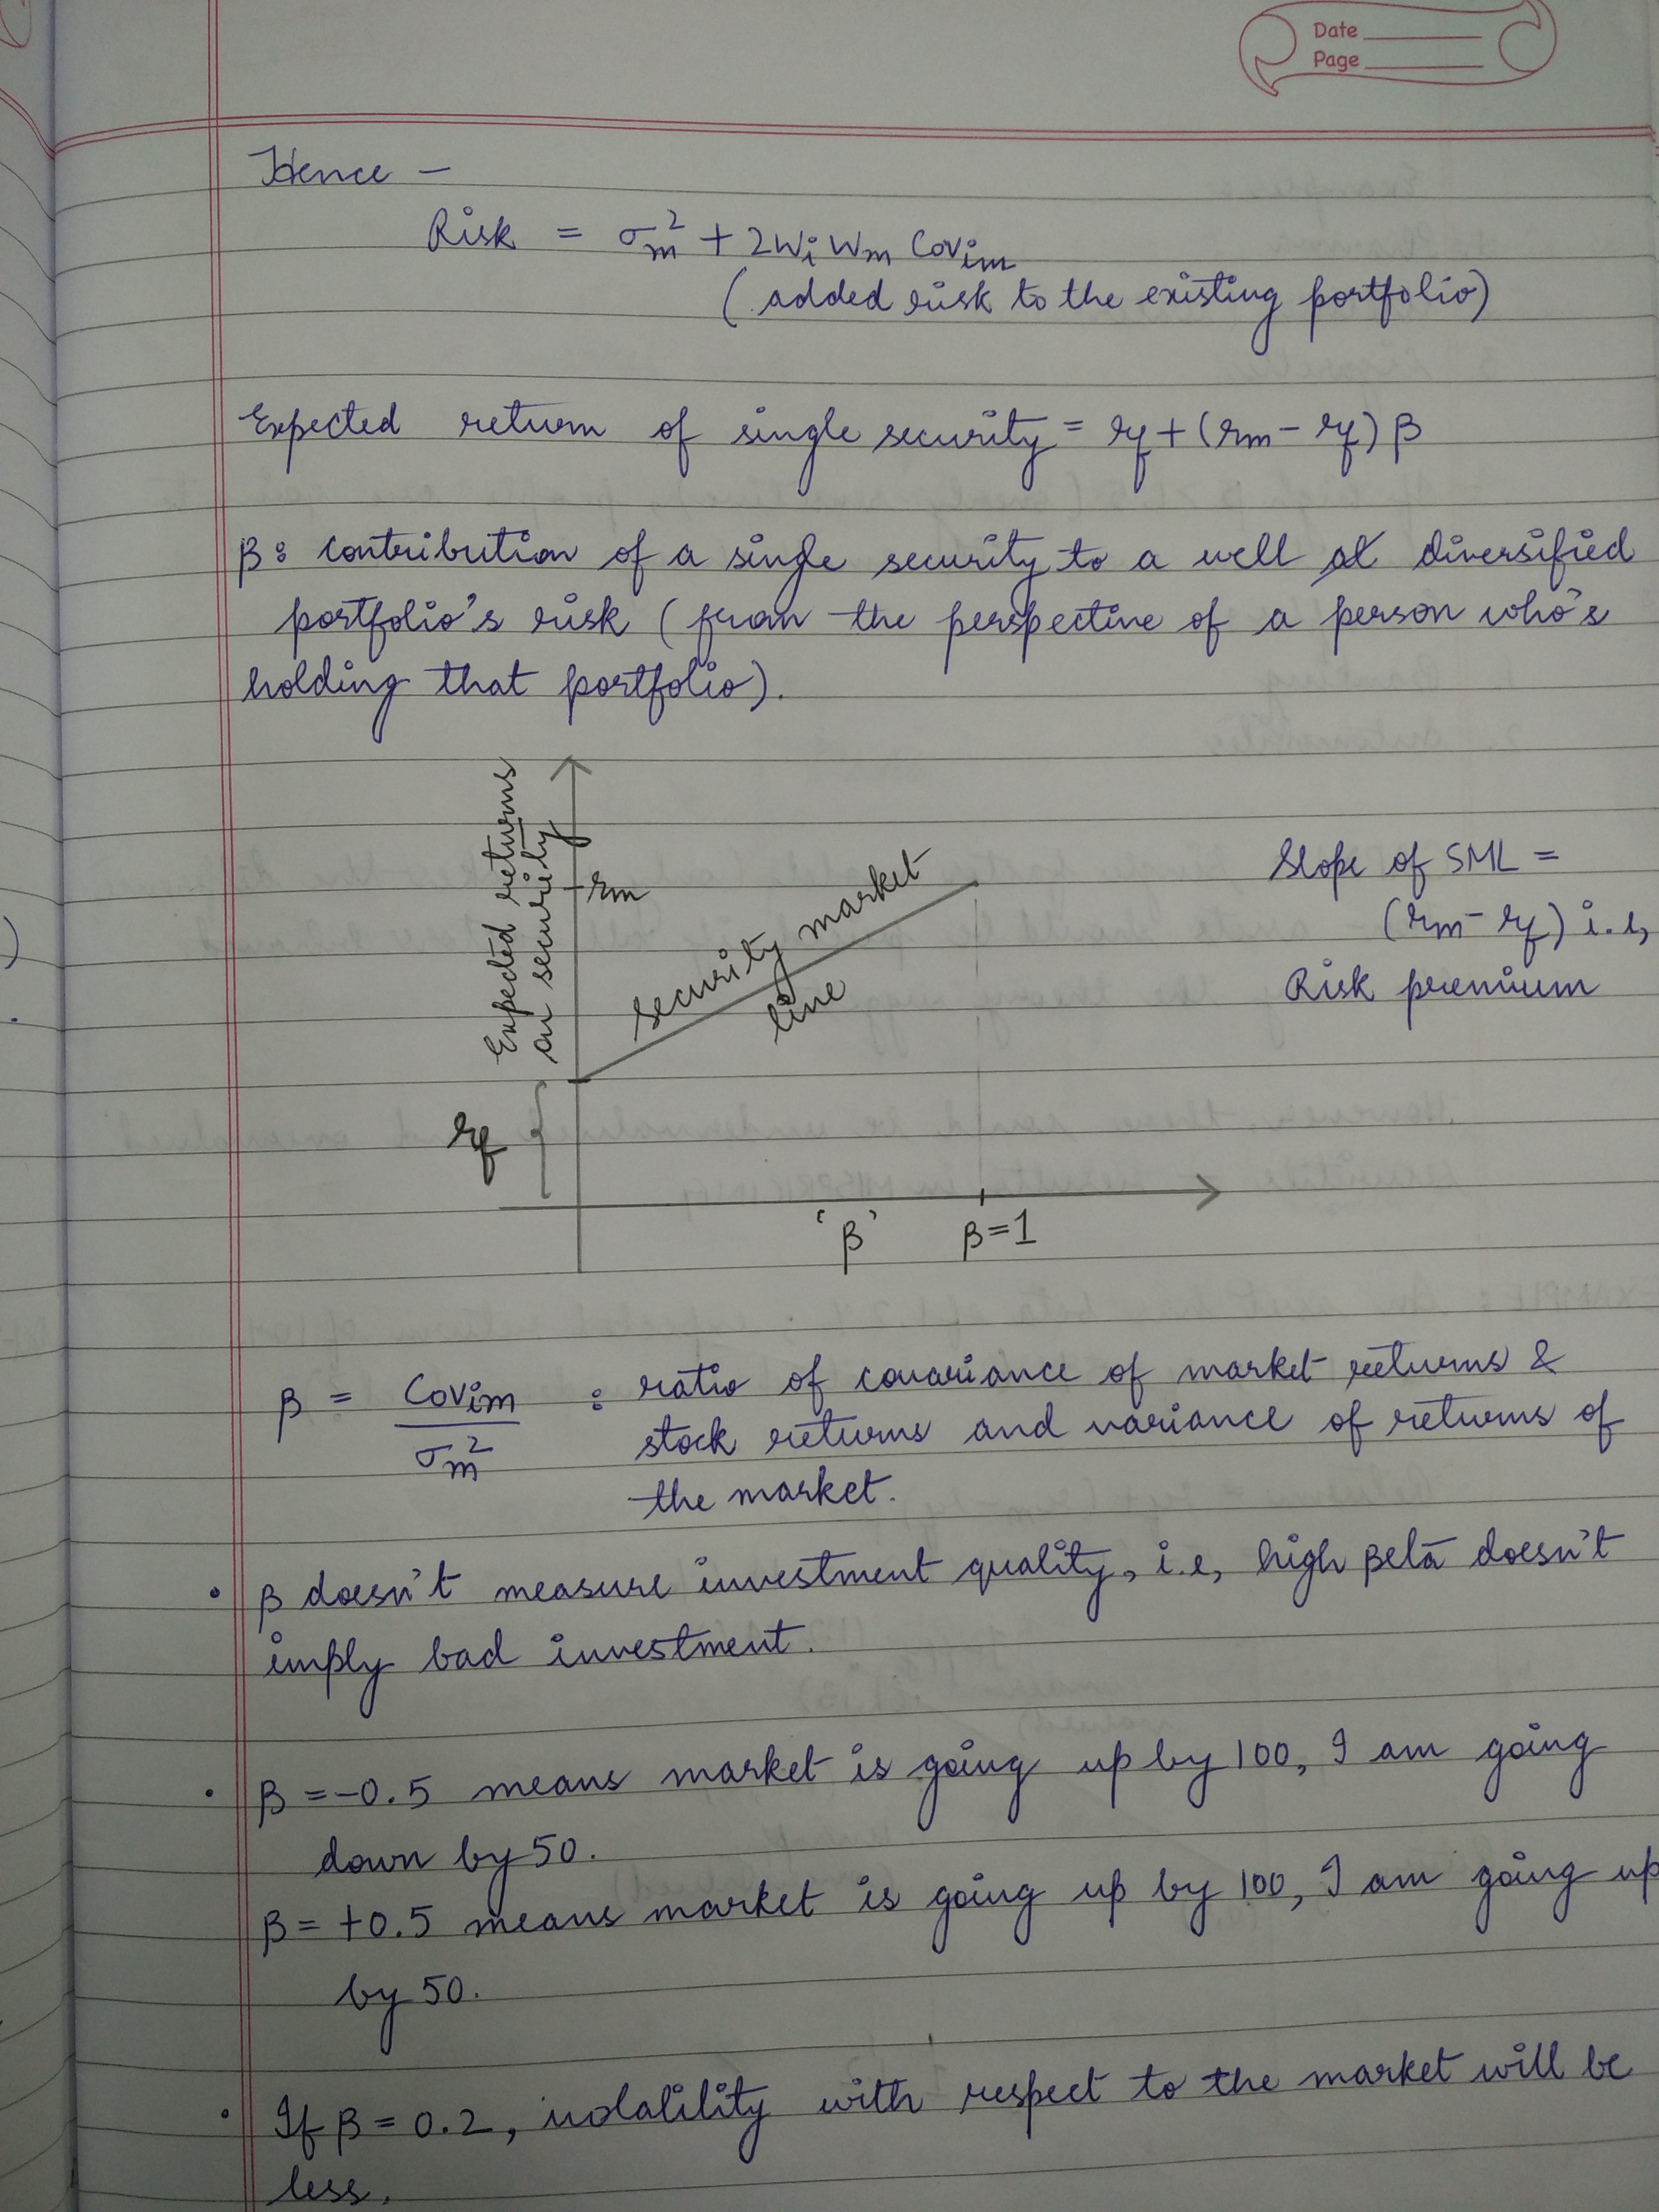 Date
Page
Hence –
Risk = σm² + 2Wi Wm Covim
(added risk to the existing portfolio)
Expected return of single security = rf + (rm – rf) β
β : contribution of a single security to a well diversified
portfolio's risk (from the perspective of a person who's
holding that portfolio).
Expected returns
on security
rm
security market
line
Slope of SML =
(rm – rf) i.e,
Risk premium
rf
'β'
β=1
β = Covim / σm² : ratio of covariance of market returns &
stock returns and variance of returns of
the market.
• β doesn't measure investment quality, i.e, high βeta doesn't
imply bad investment.
• β = -0.5 means market is going up by 100, I am going
down by 50.
β = +0.5 means market is going up by 100, I am going up
by 50.
• If β = 0.2, volatility with respect to the market will be
less.